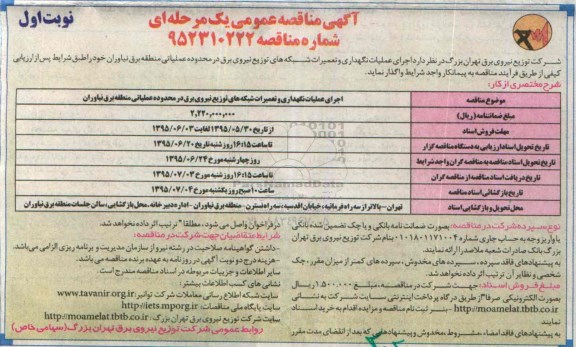 آگهی مناقصه عمومی یک مرحله ای
نوبت اول
شماره مناقصه ۹۵۲۳۱۰۲۲۲
شرکت توزیع نیروی برق تهران بزرگ در نظر دارد اجرای عملیات نگهداری و تعمیرات شبکه های توزیع نیروی برق در محدوده عملیاتی منطقه برق نیاوران خود را طبق شرایط پس از ارزیابی
کیفی از طریق فرآیند مناقصه به پیمانکار واجد شرایط واگذار نماید.
شرح مختصری از کار:
موضوع مناقصه اجرای عملیات نگهداری و تعمیرات شبکه های توزیع نیروی برق در محدوده عملیاتی منطقه برق نیاوران
مبلغ ضمانتنامه (ریال) ۲,۲۲۰,۰۰۰,۰۰۰
مهلت فروش اسناد از تاریخ ۱۳۹۵/۰۵/۳۰ لغایت ۱۳۹۵/۰۶/۰۳
تاریخ تحویل اسناد ارزیابی به دستگاه مناقصه گزار تا ساعت ۱۶:۱۵ روز شنبه تاریخ ۱۳۹۵/۰۶/۲۰
تاریخ تحویل اسناد مناقصه به مناقصه گران واجد شرایط روز چهارشنبه مورخ ۱۳۹۵/۰۶/۲۴
تاریخ دریافت اسناد مناقصه از مناقصه گران تا ساعت ۱۶:۱۵ روز شنبه مورخ ۱۳۹۵/۰۷/۰۳
تاریخ بازگشائی اسناد مناقصه ساعت ۱۰ صبح روز یکشنبه مورخ ۱۳۹۵/۰۷/۰۴
محل تحویل و بازگشایی اسناد تهران - بالاتر از سه راه فرمانیه - خیابان اقدسیه - سه راه نسترن - منطقه برق نیاوران - اداره دبیرخانه - محل بازگشایی، سالن جلسات منطقه برق نیاوران
نوع سپرده شرکت در مناقصه: بصورت ضمانت نامه بانکی و یا چک تضمین شده بانکی
یا واریز وجه به حساب جاری شماره ۰۱۱۸۰۱۷۱۰۰۴ بنام شرکت توزیع نیروی برق تهران
بزرگ بانک صادرات شعبه ملاصدرا ارائه نمایند.
به پیشنهادهای فاقد سپرده، سپرده های مخدوش، سپرده های کمتر از میزان مقرر، چک
شخصی و نظایر آن ترتیب اثر داده نخواهد شد.
مبلغ فروش اسناد: جهت شرکت در مناقصه، مبلغ ۱,۵۰۰,۰۰۰ ریال
بصورت الکترونیکی صرفا از طریق درگاه پرداخت اینترنتی سایت شرکت به نشانی
http://moamelat.tbtb.co.ir - بنز ثبت نام مناقصه و مزایده اقدام به خرید اسناد
نمایند.
به پیشنهادهای فاقد امضاء، مشروط، مخدوش و پیشنهادهایی که بعد از انقضای مدت مقرر
در فراخوان واصل می شود، مطلقا" ترتیب اثر داده نخواهد شد.
شرایط متقاضیان جهت شرکت در مناقصه:
-داشتن گواهینامه صلاحیت در رشته نیرو از سازمان مدیریت و برنامه ریزی الزامی می باشد.
-هزینه درج دو نوبت آگهی در روزنامه به عهده برنده مناقصه می باشد.
سایر اطلاعات و جزییات مربوطه در اسناد مناقصه مندرج است.
نشانی های کسب اطلاعات بیشتر:
سایت شبکه اطلاع رسانی معاملات شرکت توانیر: http://www.tavanir.org.ir
سایت پایگاه ملی مناقصات: http://iets.mporg.ir
سایت شرکت توزیع نیروی برق تهران بزرگ: http://moamelat.tbtb.co.ir
روابط عمومی شرکت توزیع نیروی برق تهران بزرگ (سهامی خاص)